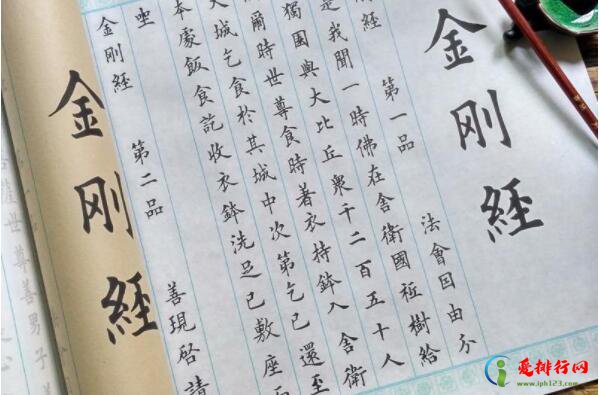 金刚經
剛經 第一品 法會因由分
是我聞一時佛在舍衛國祇樹給
獨園與大比丘衆千二百五十人
爾時世尊食時著衣持鉢入舍衛
大城乞食於其城中次第乞已還至
本處飯食訖收衣鉢洗足已敷座而
坐
金剛經 第二品 善現啓請
金刚經
薩世尊善男子
爱排行网
www.iph123.com